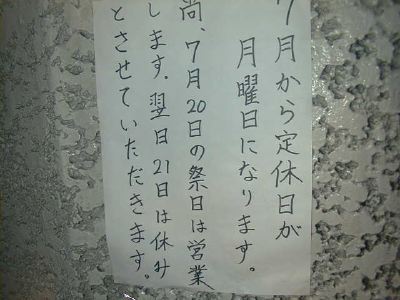 7月から定休日が
月曜日になります。
尚、7月20日の祭日は営業
します。翌日21日は休み
とさせていただきます。